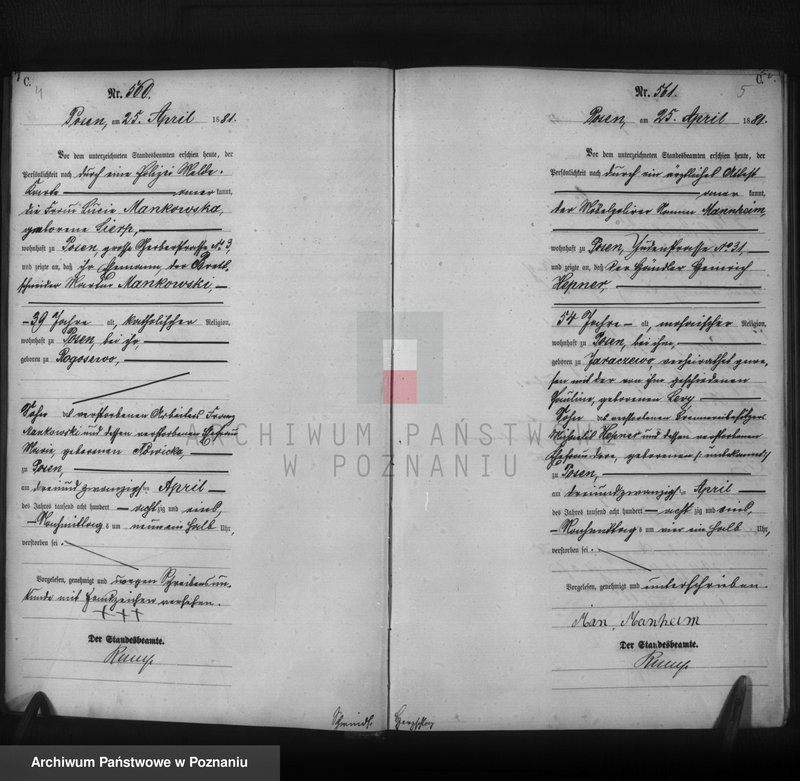 C.
4
Nr. 560.
Posen, am 25. April 1881.
Vor dem unterzeichneten Standesbeamten erschien heute, der
Persönlichkeit nach durch eine Polizei Melde-
Karte kannt,
die Frau Lucie Mankowska,
geborene Sierp,
wohnhaft zu Posen, große Gerberstraße No 3
und zeigte an, daß ihr Ehemann, der Brett-
schneider Martin Mankowski,
39 Jahre alt, katholischer Religion,
wohnhaft zu Posen, bei ihr,
geboren zu Rogosewo,
Sohn des verstorbenen Arbeiters Franz
Mankowski und dessen verstorbenen Ehefrau
Marie, geborenen Nowicka,
zu Posen,
am dreiundzwanzigsten April
des Jahres tausend acht hundert achtzig und eins,
Nachmittags um neun ein halb Uhr,
verstorben sei.
Vorgelesen, genehmigt und wegen Schreibensun-
kunde mit Handzeichen versehen.
+++
Der Standesbeamte.
C.
5
Nr. 561.
Posen, am 25. April 1881.
Vor dem unterzeichneten Standesbeamten erschien heute, der
Persönlichkeit nach durch ein ärztliches Attest
kannt,
der Möbelpolirer Mannheim,
wohnhaft zu Posen, Judenstraße No 31,
und zeigte an, daß der Händler Heinrich
Hepner,
54 Jahre alt, mosaischer Religion,
wohnhaft zu Posen, bei ihm,
geboren zu Jaraczewo, verheirathet gewe-
sen mit der von ihm geschiedenen
Pauline, geborenen Levy
Sohn des verstorbenen
Michael Hepner und dessen verstorbenen
Ehefrau Dore, geborenen (unbekannt)
zu Posen,
am dreiundzwanzigsten April
des Jahres tausend acht hundert achtzig und eins,
Nachmittags um vier ein halb Uhr,
verstorben sei.
Vorgelesen, genehmigt und unterschrieben.
Man. Manheim
Der Standesbeamte.
ARCHIWUM PAŃSTWOWE
W POZNANIU
Archiwum Państwowe w Poznaniu